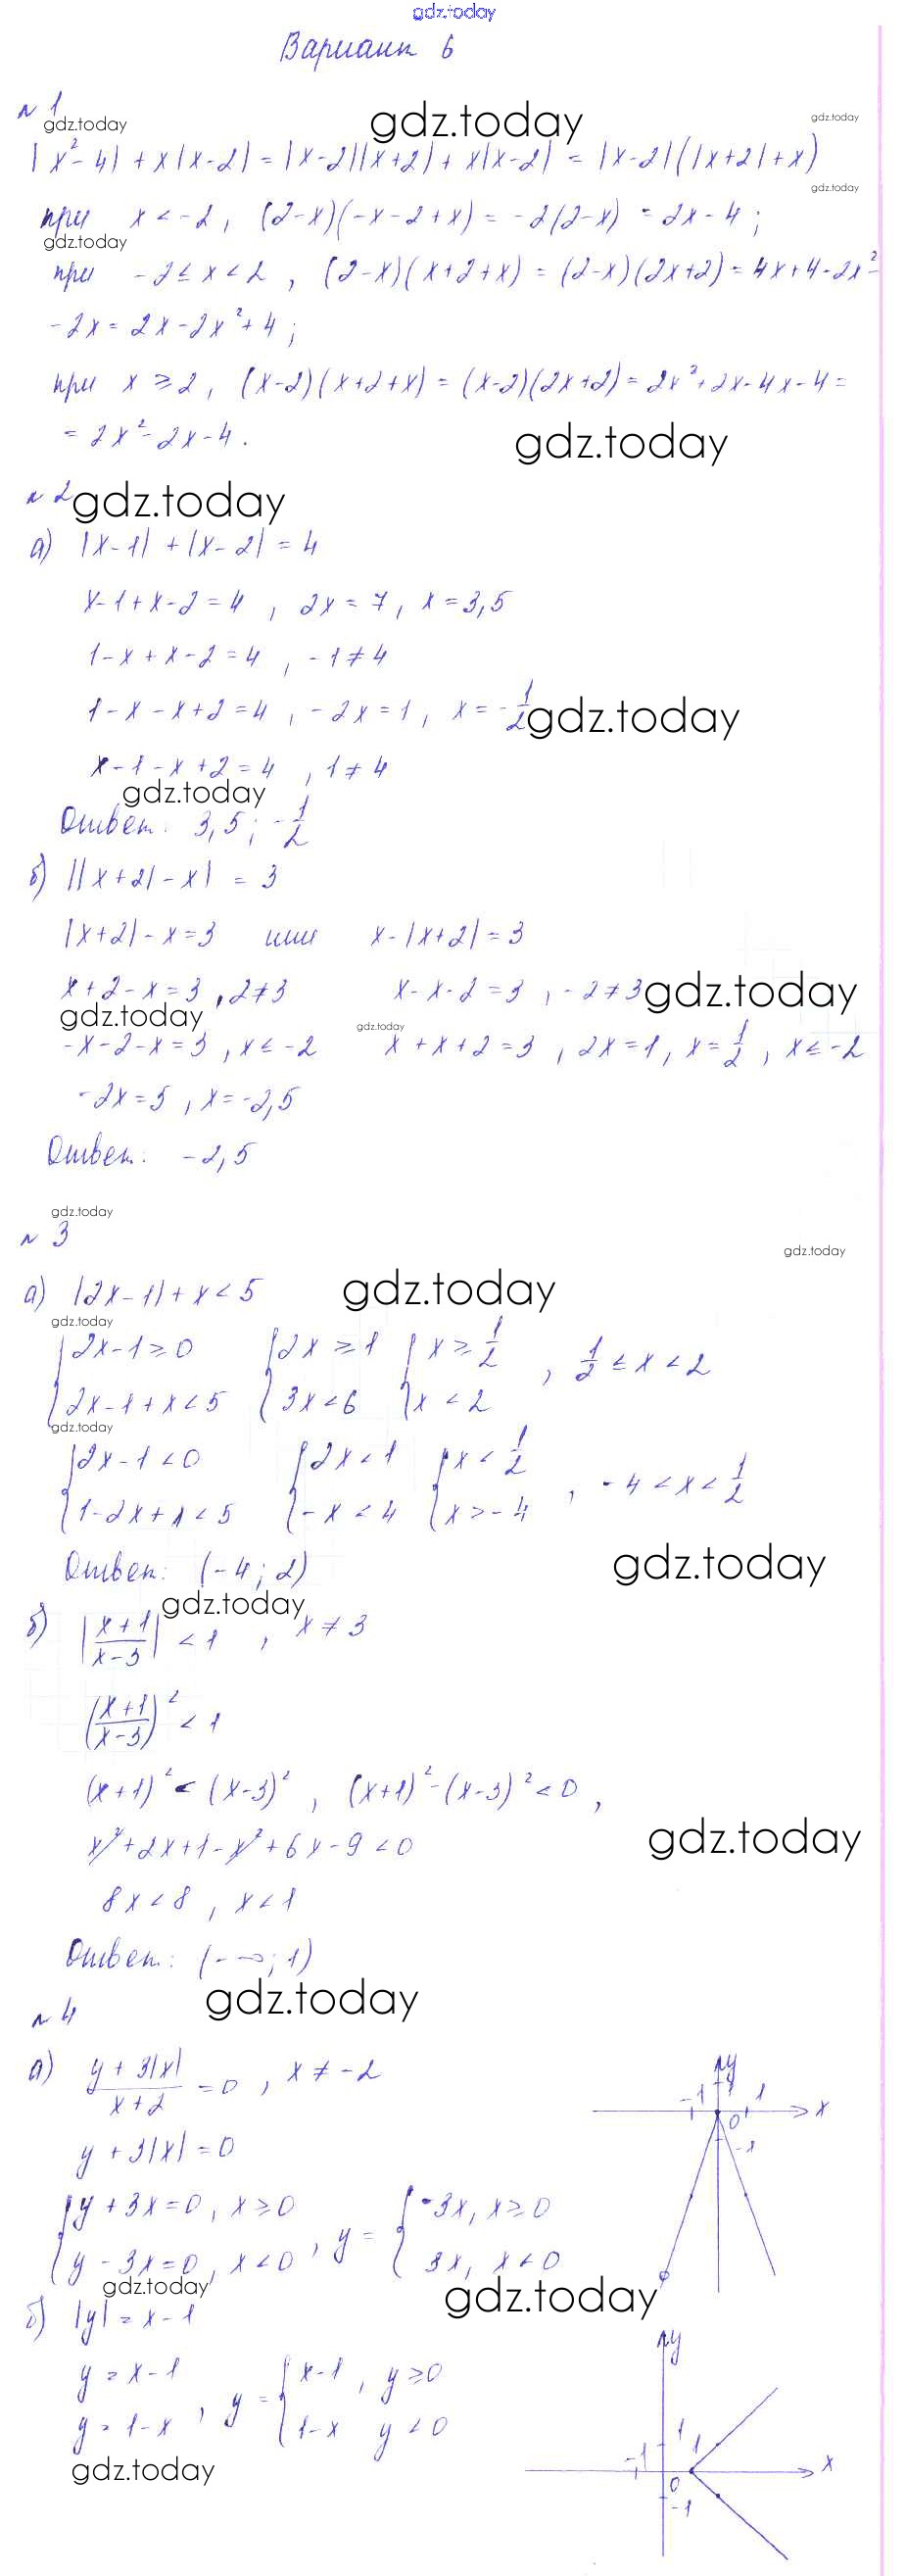 gdz.today
Вариант 6
№ 1
gdz.today
gdz.today
gdz.today
|x² - 4| + x|x - 2| = |x - 2||x + 2| + x|x - 2| = |x - 2|(|x + 2| + x)
gdz.today
при x < -2, (2 - x)(-x - 2 + x) = -2(2 - x) = 2x - 4;
gdz.today
при -2 ≤ x < 2, (2 - x)(x + 2 + x) = (2 - x)(2x + 2) = 4x + 4 - 2x² -
- 2x = 2x - 2x² + 4;
при x ≥ 2, (x - 2)(x + 2 + x) = (x - 2)(2x + 2) = 2x² + 2x - 4x - 4 =
= 2x² - 2x - 4.
gdz.today
№ 2
gdz.today
а) |x - 1| + |x - 2| = 4
x - 1 + x - 2 = 4, 2x = 7, x = 3,5
1 - x + x - 2 = 4, -1 ≠ 4
1 - x - x + 2 = 4, -2x = 1, x = -1/2
gdz.today
x - 1 - x + 2 = 4, 1 ≠ 4
gdz.today
Ответ: 3,5; -1/2
б) ||x + 2| - x| = 3
|x + 2| - x = 3 или x - |x + 2| = 3
x + 2 - x = 3, 2 ≠ 3 x - x - 2 = 3, -2 ≠ 3
gdz.today
gdz.today
gdz.today
-x - 2 - x = 3, x ≤ -2 x + x + 2 = 3, 2x = 1, x = 1/2, x ≤ -2
-2x = 5, x = -2,5
Ответ: -2,5
gdz.today
№ 3
gdz.today
а) |2x - 1| + x < 5
gdz.today
gdz.today
{2x - 1 ≥ 0 {2x ≥ 1 {x ≥ 1/2
2x - 1 + x < 5 3x < 6 x < 2 , 1/2 ≤ x < 2
gdz.today
{2x - 1 < 0 {2x < 1 {x < 1/2
1 - 2x + x < 5 -x < 4 x > -4 , -4 < x < 1/2
Ответ: (-4; 2)
gdz.today
gdz.today
б) |(x + 1)/(x - 3)| < 1, x ≠ 3
((x + 1)/(x - 3))² < 1
(x + 1)² < (x - 3)², (x + 1)² - (x - 3)² < 0,
gdz.today
x² + 2x + 1 - x² + 6x - 9 < 0
8x < 8, x < 1
Ответ: (-∞; 1)
gdz.today
№ 4
а) (y + 3|x|)/(x + 2) = 0, x ≠ -2
y + 3|x| = 0
{y + 3x = 0, x ≥ 0
y - 3x = 0, x < 0 , y = {-3x, x ≥ 0
3x, x < 0
y
1
-1
1
x
0
-1
gdz.today
gdz.today
б) |y| = x - 1
y = x - 1
y = 1 - x , y = {x - 1, y ≥ 0
1 - x y < 0
gdz.today
y
1
-1
1
x
0
-1